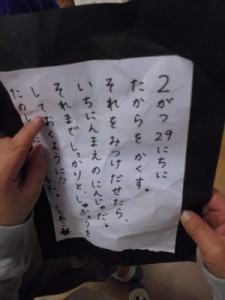 2がつ29にちに
たからをかくす。
それをみつけだせたら、
いちにんまえのにんじゃだ。
それまでしっかりとしゅぎょうを
しておくように!!
たのし